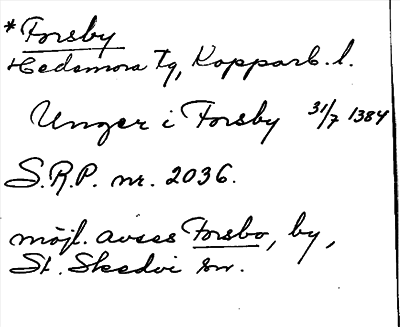 *Forsby
Hedemora Tg, Kopparb. l.
Unger i Forsby 31/7 1384
S.R.P. nr. 2036.
möjl. avses Forsbo, by,
St. Skedvi sn.